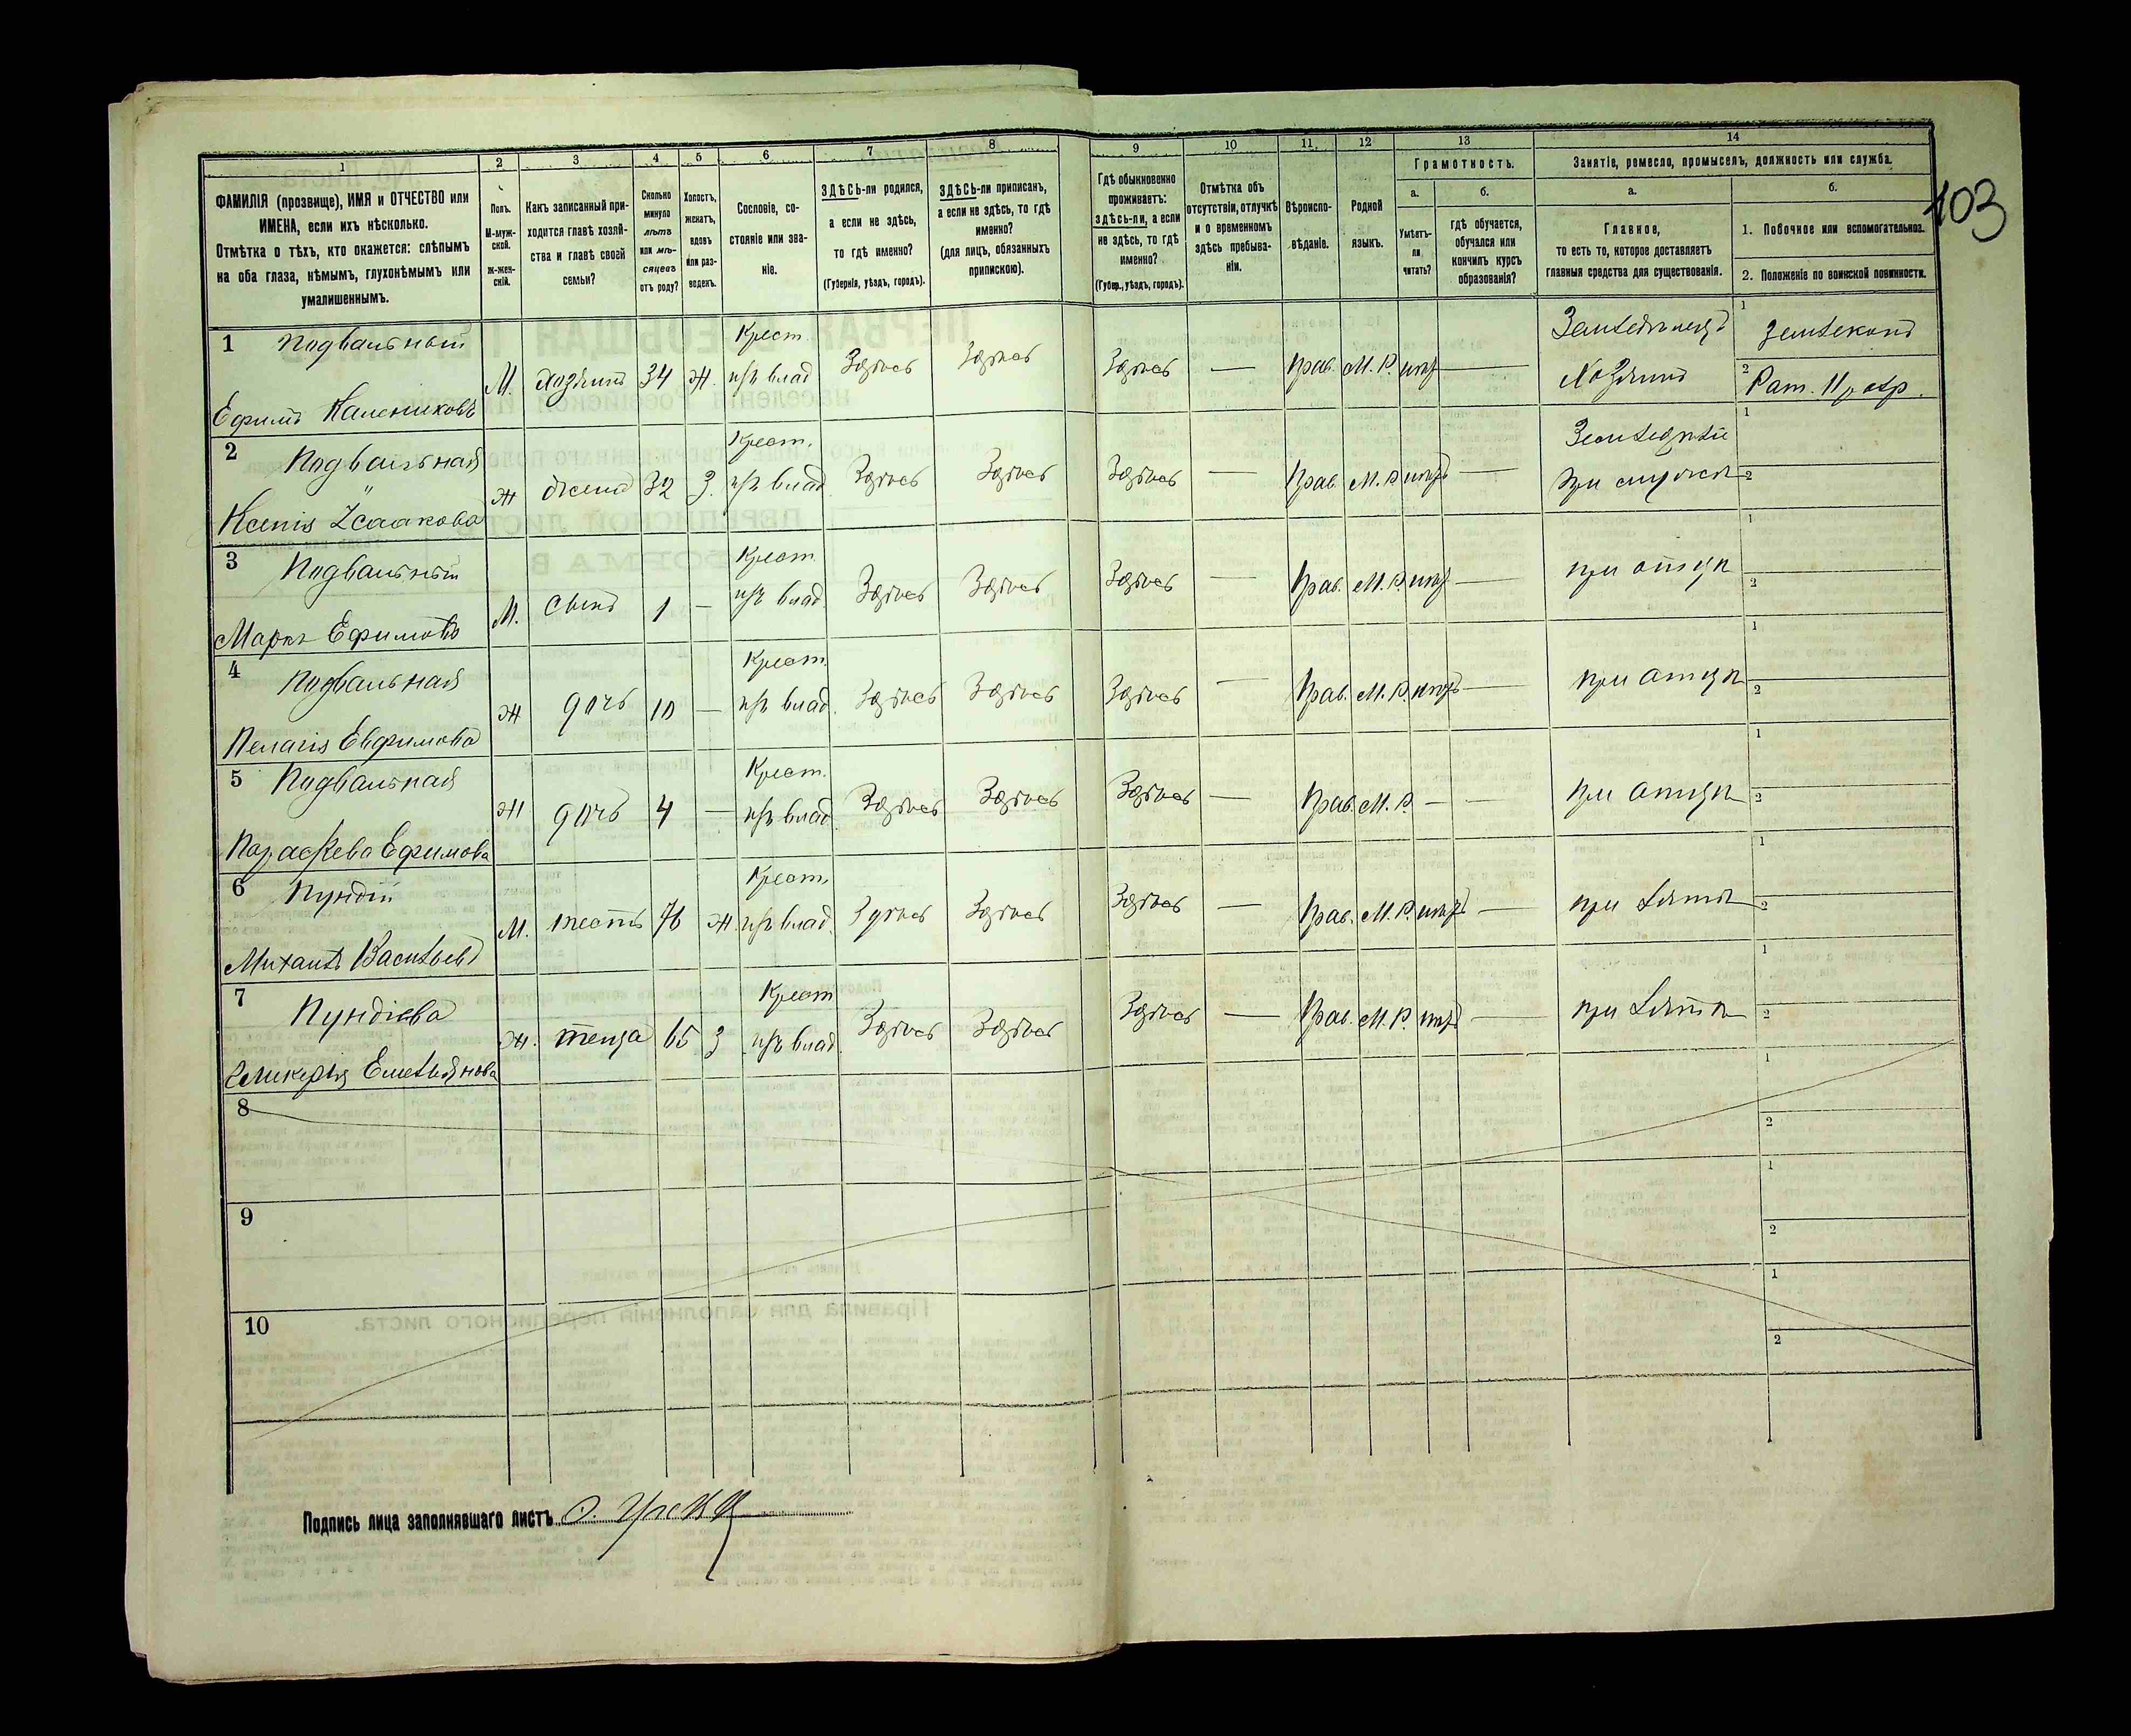 103
1 2 3 4 5 6 7 8 9 10 11 12 13 14
ФАМИЛІЯ (прозвище), ИМЯ и ОТЧЕСТВО или
ИМЕНА, если ихъ нѣсколько.
Отмѣтка о тѣхъ, кто окажется: слѣпымъ
на оба глаза, нѣмымъ, глухонѣмымъ или
умалишеннымъ.
Полъ.
М-муж-
ской.
ж-жен-
скій.
Какъ записанный при-
ходится главѣ хозяй-
ства и главѣ своей
семьи?
Сколько
минуло
лѣтъ
или мѣ-
сяцевъ
отъ роду?
Холостъ,
женатъ,
вдовъ
или раз-
веденъ.
Сословіе, со-
стояніе или зва-
ніе.
ЗДѢСЬ-ли родился,
а если не здѣсь,
то гдѣ именно?
(Губернія, уѣздъ, городъ).
ЗДѢСЬ-ли приписанъ,
а если не здѣсь, то гдѣ
именно?
(для лицъ, обязанныхъ
припискою).
Гдѣ обыкновенно
проживаетъ:
здѣсь-ли, а если
не здѣсь, то гдѣ
именно?
(Губер., уѣздъ, городъ).
Отмѣтка объ
отсутствіи, отлучкѣ
и о временномъ
здѣсь пребыва-
ніи.
Вѣроиспо-
вѣданіе.
Родной
языкъ.
Грамотность.
а.
Умѣетъ-
ли
читать?
б.
гдѣ обучается,
обучался или
кончилъ курсъ
образованія?
Занятіе, ремесло, промыселъ, должность или служба.
а.
Главное,
то есть то, которое доставляетъ
главныя средства для существованія.
б.
1. Побочное или вспомогательное.
2. Положеніе по воинской повинности.
1 Подвальный
Ефимъ Калениковъ
М. хозяинъ 34 ж. Крест. изъ влад Здѣсь Здѣсь Здѣсь — Прав. М.Р. нѣтъ —
Земледѣлецъ
Хозяинъ
1
2 Рат.
2 Подвальная
Ксенія Ісаакова
ж жена 32 З. Крест. изъ влад Здѣсь Здѣсь Здѣсь — Прав. М.Р. нѣтъ —
Земледѣліе
при мужѣ
1
2
3 Подвальный
Марко Ефимовъ
М. Сынъ 1 — Крест. изъ влад. Здѣсь Здѣсь Здѣсь — Прав. М.Р. нѣтъ —
при отцѣ
1
2
4 Подвальная
Пелагія Евфимова
ж дочь 10 — Крест. изъ влад. Здѣсь Здѣсь Здѣсь — Прав. М.Р. нѣтъ —
при отцѣ
1
2
5 Подвальная
Параскева Ефимова
ж дочь 4 — Крест. изъ влад. Здѣсь Здѣсь Здѣсь — Прав. М.Р. — —
при отцѣ
1
2
6 Пундій
Михаилъ Васильевъ
М. тесть 76 ж. Крест. изъ влад. Здѣсь Здѣсь Здѣсь — Прав. М.Р. нѣтъ —
при зятѣ
1
2
7 Пундіева
Гликерія Емельянова
ж. теща 65 З Крест изъ влад. Здѣсь Здѣсь Здѣсь — Прав. М.Р. нѣтъ —
при зятѣ
1
2
8
1
2
9
1
2
10
1
2
Подпись лица заполнявшаго листъ